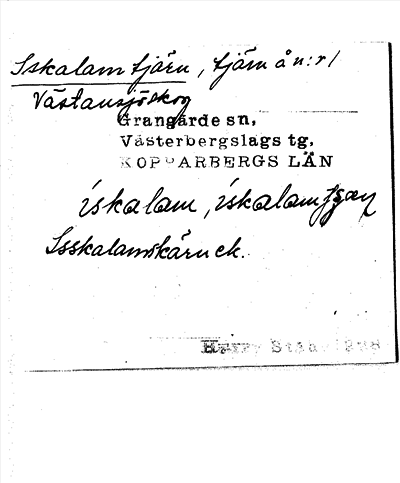 Iskalamtjärn, tjärn å n:r 1
Västansjöskog
Grangärde sn,
Västerbergslags tg,
KOPPARBERGS LÄN
ískalam, ískalam
Harry Ståhl